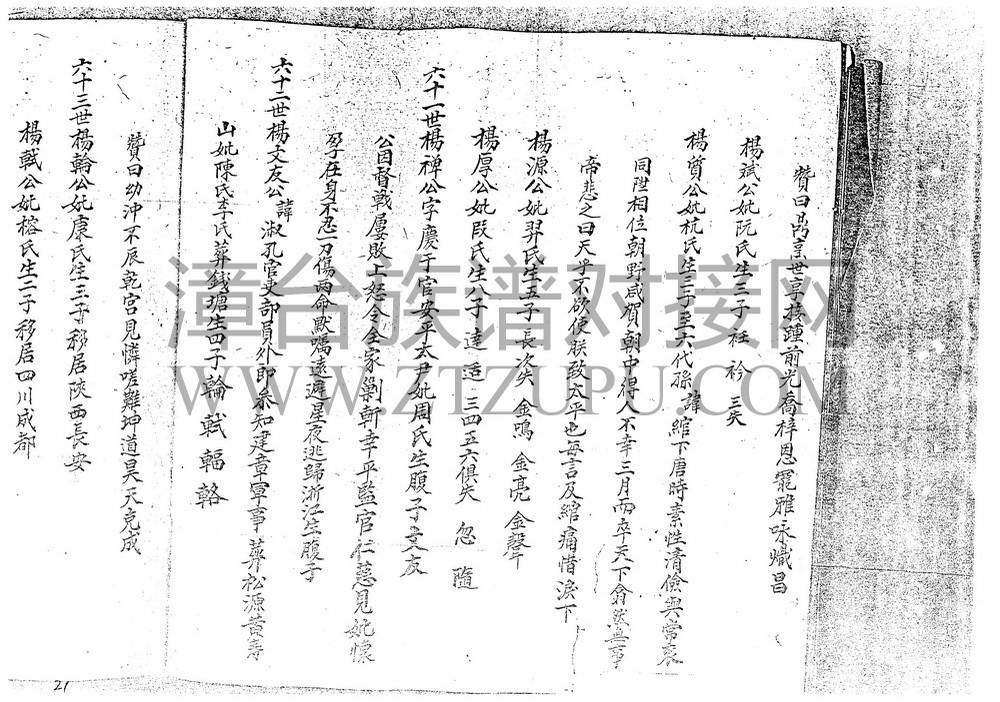 贊曰啇烹世享接踵前光喬梓恩寵雅咏熾昌
楊斌公妣阮氏生三子 衽 衿 三失
楊質公妣杭氏生三子至六代孫諱綰下唐時素性清儉與常衮
同陞相位朝野咸賀朝中得人不幸三月而卒天下翕然無事
帝悲之曰天乎不欲使朕致太平也每言及綰痛惜淚下
楊源公妣羿氏生五子 長次失 金鳴 金亮 金聲
楊厚公妣段氏生八子 達 适 三四五六俱失 忽 隨
六十一世楊禅公字慶于官安平太尹妣周氏生腹子文友
公因督戰屢敗上怒令全家剿斬幸平監官仁慈見妣懷
孕在身不忍一刀傷兩命默囑遠遁星夜逃歸浙江生腹子
六十二世楊文友公 諱淑孔官吏部員外郎叅知建章軍事葬松源黄壽
山妣陳氏李氏葬錢塘生四子輪 軾 輻 輅
贊曰幼沖不辰乾宮見憐嗟難坤道昊天克成
六十三世楊輪公妣康氏生三子移居陝西長安
楊軾公妣榕氏生二子移居四川成都
漳台族谱对接网
WWW.ZTZUPU.COM
21